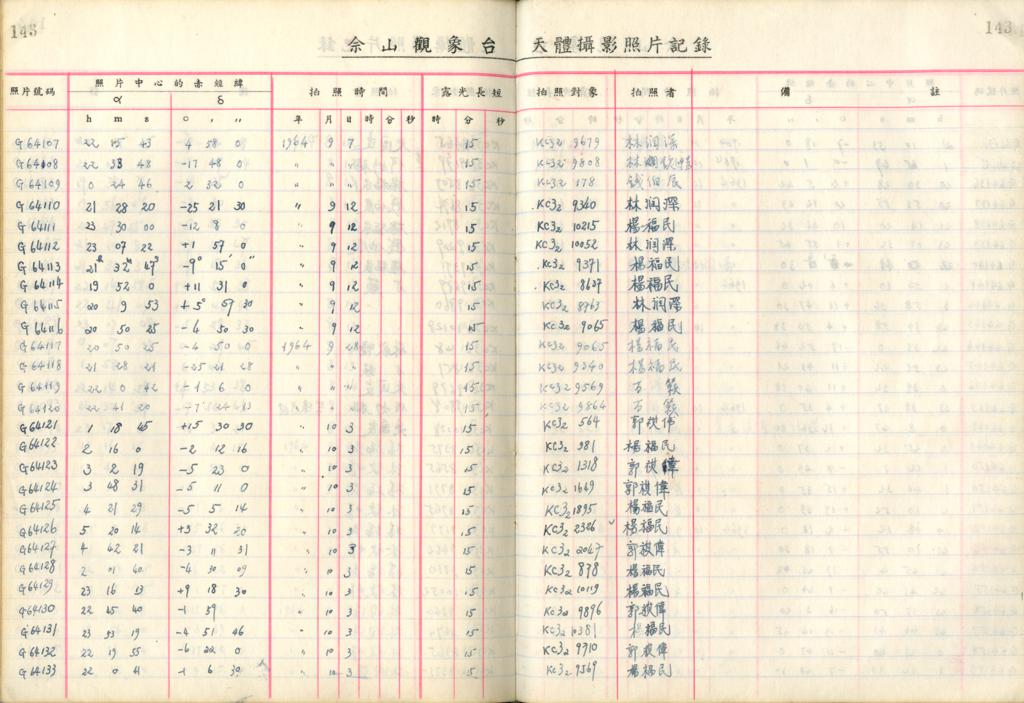 143 143
佘山觀象台 天體攝影照片記錄
照片號碼 照片中心的赤經緯 拍照時間 露光長短 拍照對象 拍照者 備註
α δ
h m s ° ′ ″ 年 月 日 時 分 秒 時 分 秒
G64107 22 15 43 4 58 0 1964 9 7 15 KC32 9679 林润深
G64108 22 38 48 -17 48 0 " " " 15 KC32 9808 林
G64109 0 24 46 2 32 0 " " " 15 KC32 178 钱伯辰
G64110 21 28 20 -25 21 30 " 9 12 15 KC32 9340 林润深
G64111 23 30 00 -12 8 0 " 9 12 15 KC32 10215 楊福民
G64112 23 07 22 +1 57 0 " 9 12 15 KC32 10052 林润深
G64113 21h 32m 47s -9° 15′ 0″ " 9 12 15 KC32 9371 楊福民
G64114 19 52 0 +11 31 0 " 9 12 15 KC32 8607 楊福民
G64115 20 9 53 +5° 57 30 " 9 12 15 KC32 8763 林润深
G64116 20 50 25 -4 50 30 " 9 12 15 KC32 9065 楊福民
G64117 20 50 25 -4 50 0 1964 9 28 15 KC32 9065 楊福民
G64118 21 28 21 -25 21 28 " " " 15 KC32 9340 楊福民
G64119 22 0 42 " " " 15 KC32 9569 万籁
G64120 22 41 20 " " " 15 KC32 9864 万籁
G64121 1 18 45 +15 30 30 " 10 3 15 KC32 564 郭棪偉
G64122 2 16 0 -2 12 16 " 10 3 15 KC32 981 楊福民
G64123 3 2 19 -5 23 0 " 10 3 15 KC32 1318 郭棪偉
G64124 3 48 31 -5 11 0 " 10 3 15 KC32 1649 郭棪偉
G64125 4 21 29 -5 5 14 " 10 3 15 KC32 1895 楊福民
G64126 5 20 14 +3 32 20 " 10 3 15 KC32 2326 楊福民
G64127 4 42 21 -3 11 31 " 10 3 15 KC32 2047 郭棪偉
G64128 2 01 40 -4 30 09 " 10 3 15 KC32 878 楊福民
G64129 23 16 13 +9 18 30 " 10 3 15 KC32 10119 楊福民
G64130 22 45 40 -1 57 " 10 3 15 KC32 9896 郭棪偉
G64131 23 53 19 -4 51 46 " 10 3 15 KC32 10381 楊福民
G64132 22 19 55 -6 22 0 " 10 3 15 KC32 9710 郭棪偉
G64133 22 0 41 -1 6 30 " 10 3 15 KC32 9569 楊福民